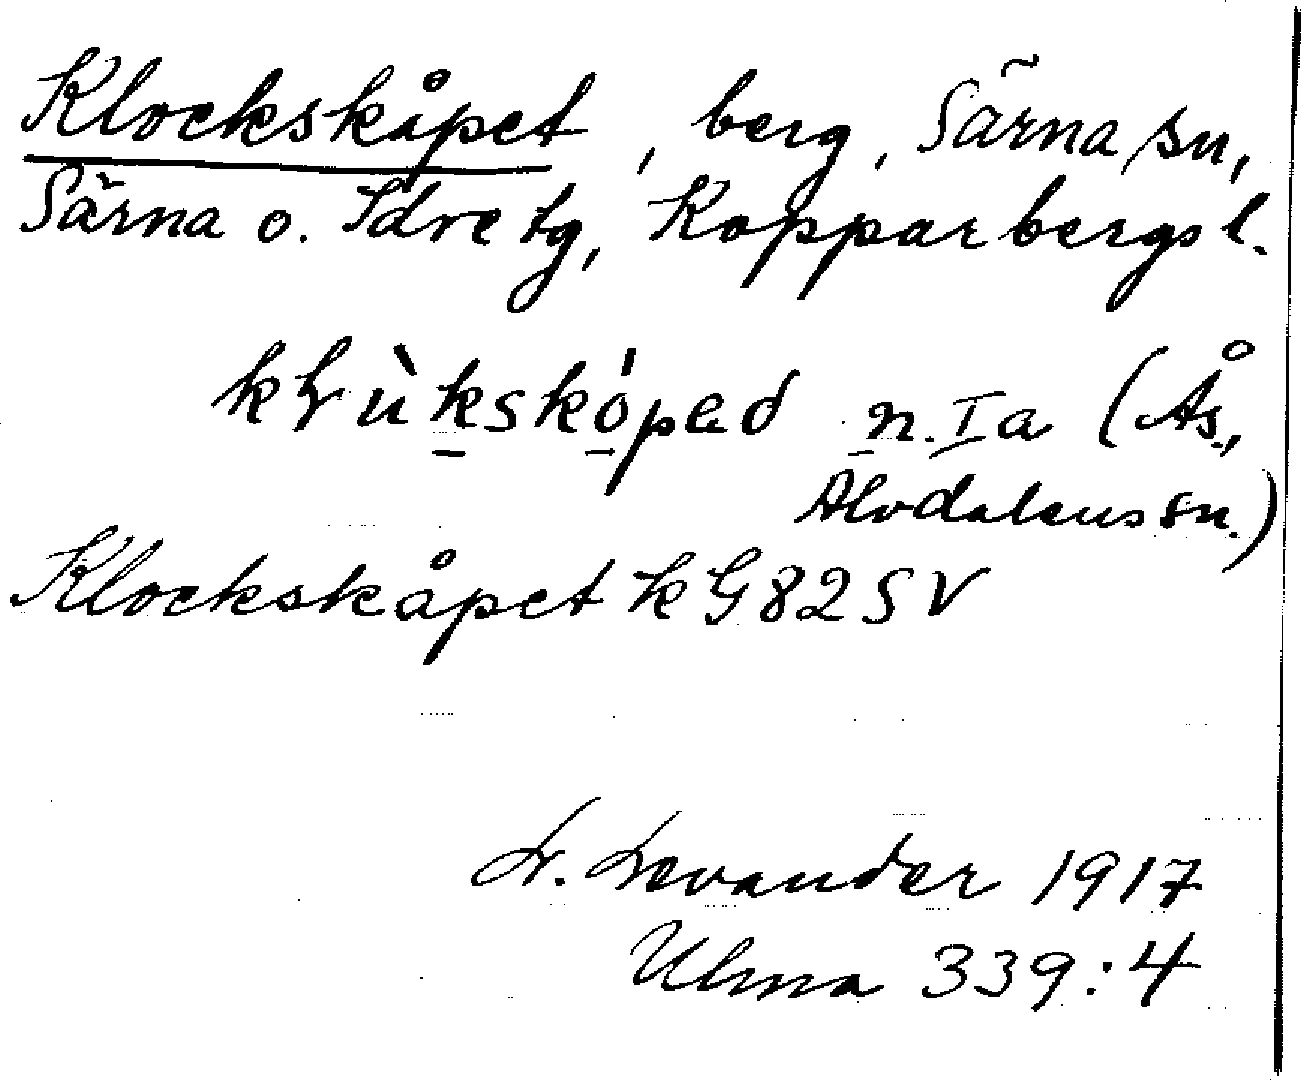 Klockskåpet, berg, Särna sn,
Särna o. Idre tg, Kopparbergs l.
n. Ia (Ås,
Älvdalens sn.)
Klockskåpet k G82SV
L. Levander 1917
Ulma 339:4